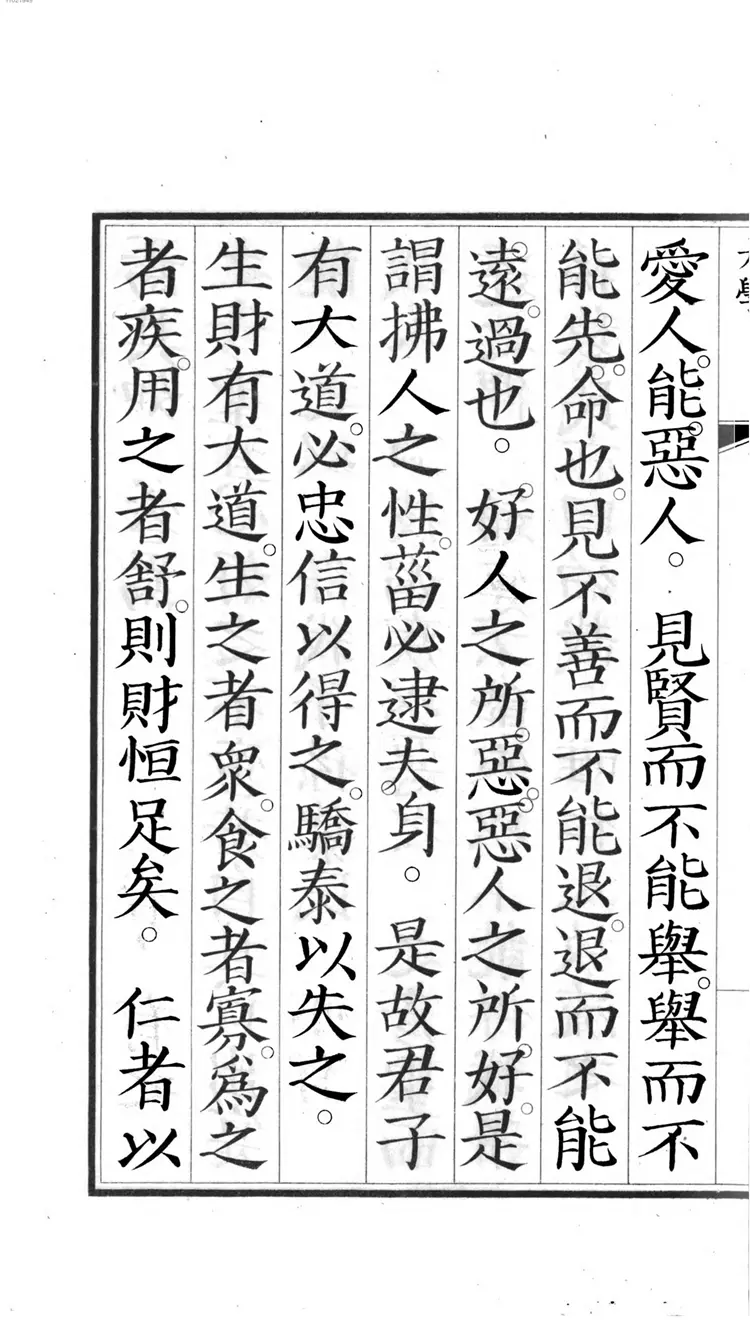 大學
愛人。能。惡人。見賢而不能舉。舉而不
能先。命也。見不善而不能退。退而不能
遠。過也。好人之所惡。惡人之所好。是
謂拂人之性。菑必逮夫身。是故君子
有大道。必忠信以得之。驕泰以失之。
生財有大道。生之者眾。食之者寡。爲之
者疾。用之者舒。則財恒足矣。仁者以